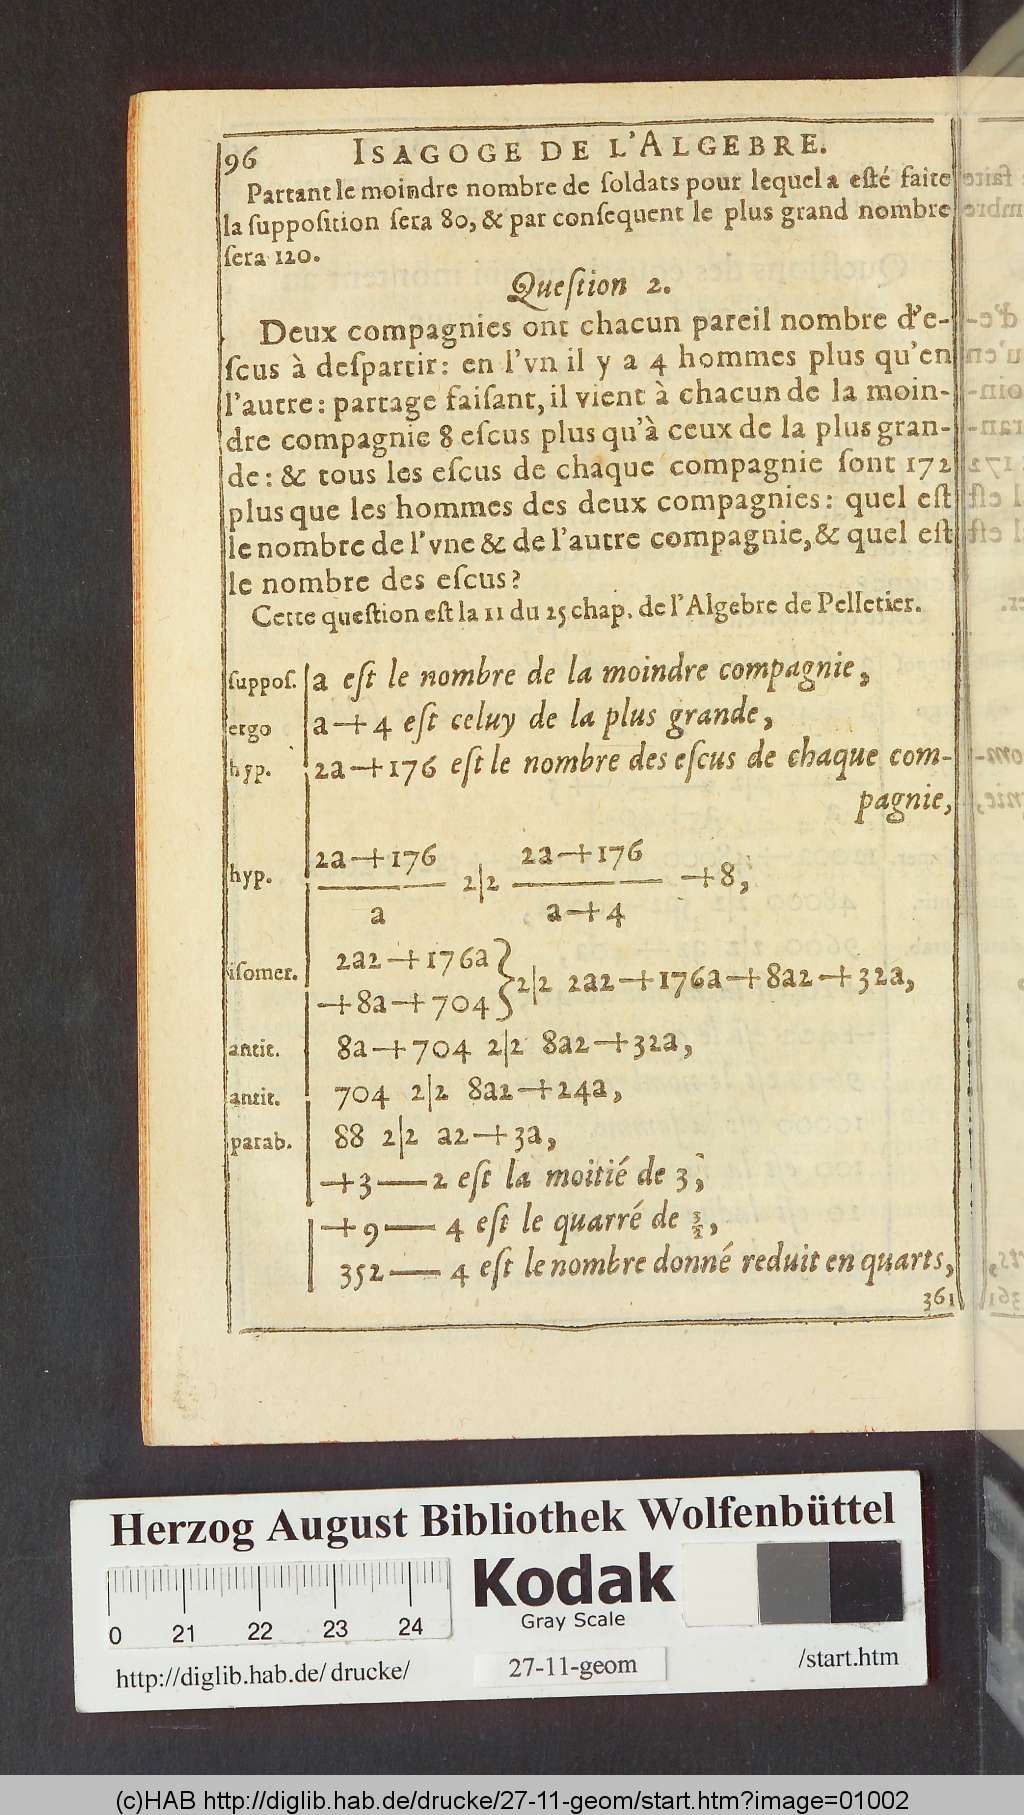 96 ISAGOGE DE L'ALGEBRE.
Partant le moindre nombre de ſoldats pour lequel a eſté faite
la ſuppoſition ſera 80, & par conſequent le plus grand nombre
ſera 120.
Queſtion 2.
Deux compagnies ont chacun pareil nombre d'e-
ſcus à deſpartir: en l'vn il y a 4 hommes plus qu'en
l'autre: partage faiſant, il vient à chacun de la moin-
dre compagnie 8 eſcus plus qu'à ceux de la plus gran-
de: & tous les eſcus de chaque compagnie ſont 172
plus que les hommes des deux compagnies: quel eſt
le nombre de l'vne & de l'autre compagnie, & quel eſt
le nombre des eſcus?
Cette queſtion eſt la 11 du 25 chap. de l'Algebre de Pelletier.
ſuppoſ. a eſt le nombre de la moindre compagnie,
ergo a+4 eſt celuy de la plus grande,
hyp. 2a+176 eſt le nombre des eſcus de chaque com-
pagnie,
2a+176 2a+176
hyp. —— 2|2 —— +8,
a a+4
iſomer. 2a2+176a
+8a+704 } 2|2 2a2+176a+8a2+32a,
antit. 8a+704 2|2 8a2+32a,
antit. 704 2|2 8a2+24a,
parab. 88 2|2 a2+3a,
+3—2 eſt la moitié de 3,
+9—4 eſt le quarré de 3/2,
352—4 eſt le nombre donné reduit en quarts,
361
Herzog August Bibliothek Wolfenbüttel
Kodak
Gray Scale
0 21 22 23 24
http://diglib.hab.de/drucke/ 27-11-geom /start.htm
(c)HAB http://diglib.hab.de/drucke/27-11-geom/start.htm?image=01002